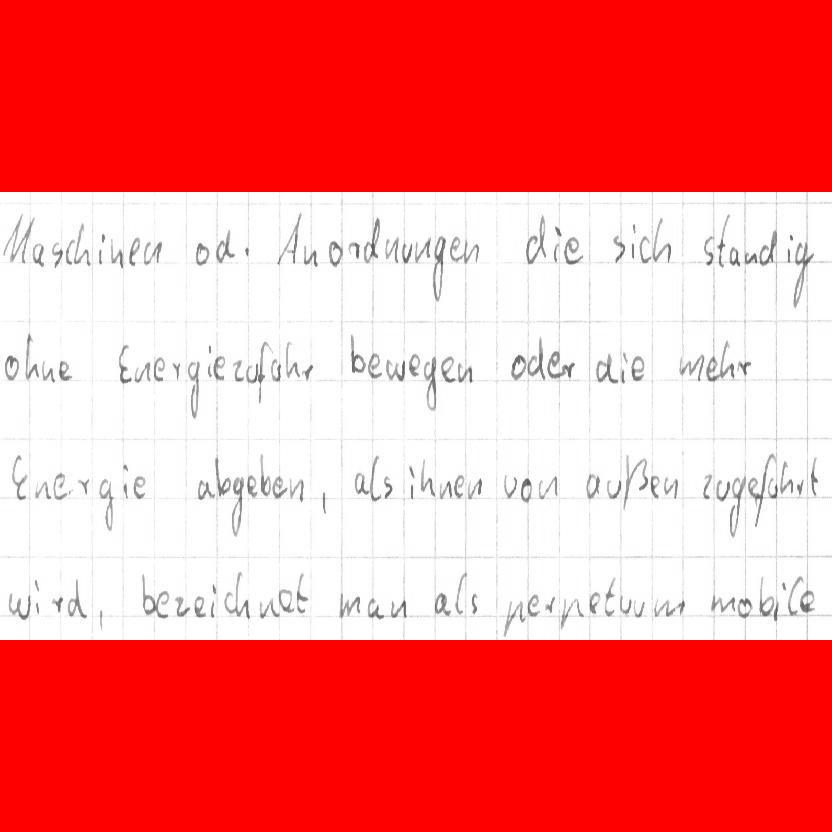 Maschinen od. Anordnungen die sich standig
ohne Energiezufuhr bewegen oder die mehr
Energie abgeben, als ihnen von außen zugeführt
wird, bezeichnet man als perpetuum mobile